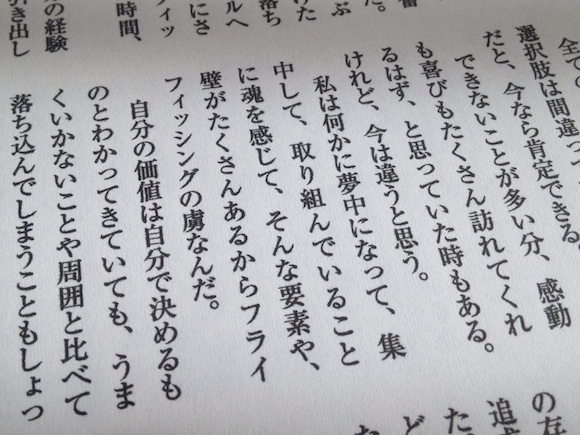 全て
選択肢は間違っ
だと、今なら肯定できる。
できないことが多い分、感動
も喜びもたくさん訪れてくれ
るはず、と思っていた時もある。
けれど、今は違うと思う。
私は何かに夢中になって、集
中して、取り組んでいること
に魂を感じて、そんな要素や、
壁がたくさんあるからフライ
フィッシングの虜なんだ。
自分の価値は自分で決めるも
のとわかってきていても、うま
くいかないことや周囲と比べて
落ち込んでしまうこともしょっ
た。
ぶ
けた
落ち
ルへ
にさ
フィッ
時間、
の経験
引き出し
の存
た
ど